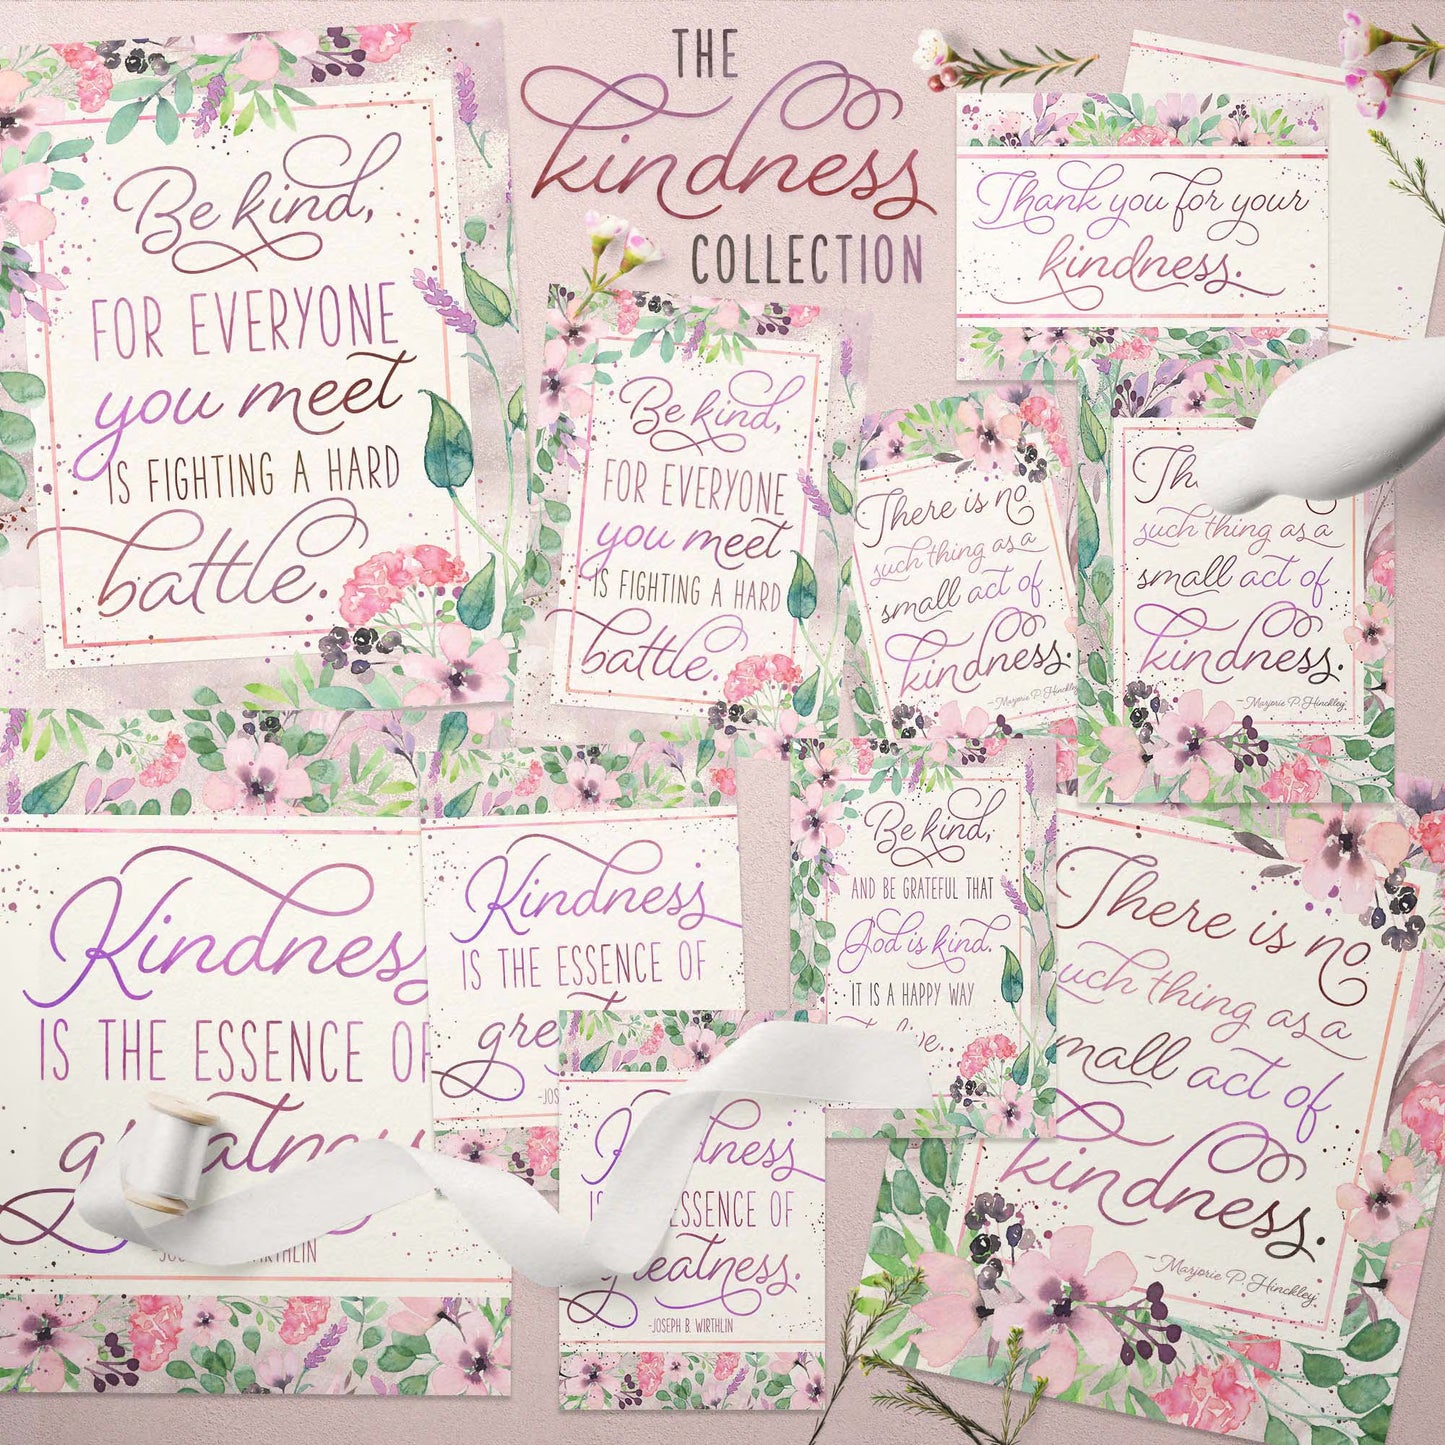 THE
kindness
COLLECTION
Be kind,
FOR EVERYONE
you meet
IS FIGHTING A HARD
battle.
Be kind,
FOR EVERYONE
you meet
IS FIGHTING A HARD
battle.
Thank you for your
kindness.
There is no
such thing as a
small act of
kindness.
-Marjorie P. Hinckley
such thing as a
small act of
kindness.
-Marjorie P. Hinckley
Kindness
IS THE ESSENCE OF
Kindness
IS THE ESSENCE OF
Be kind,
AND BE GRATEFUL THAT
God is kind.
IT IS A HAPPY WAY
There is no
such thing as a
small act of
kindness.
-Marjorie P. Hinckley
ESSENCE OF
greatness.
-JOSEPH B. WIRTHLIN